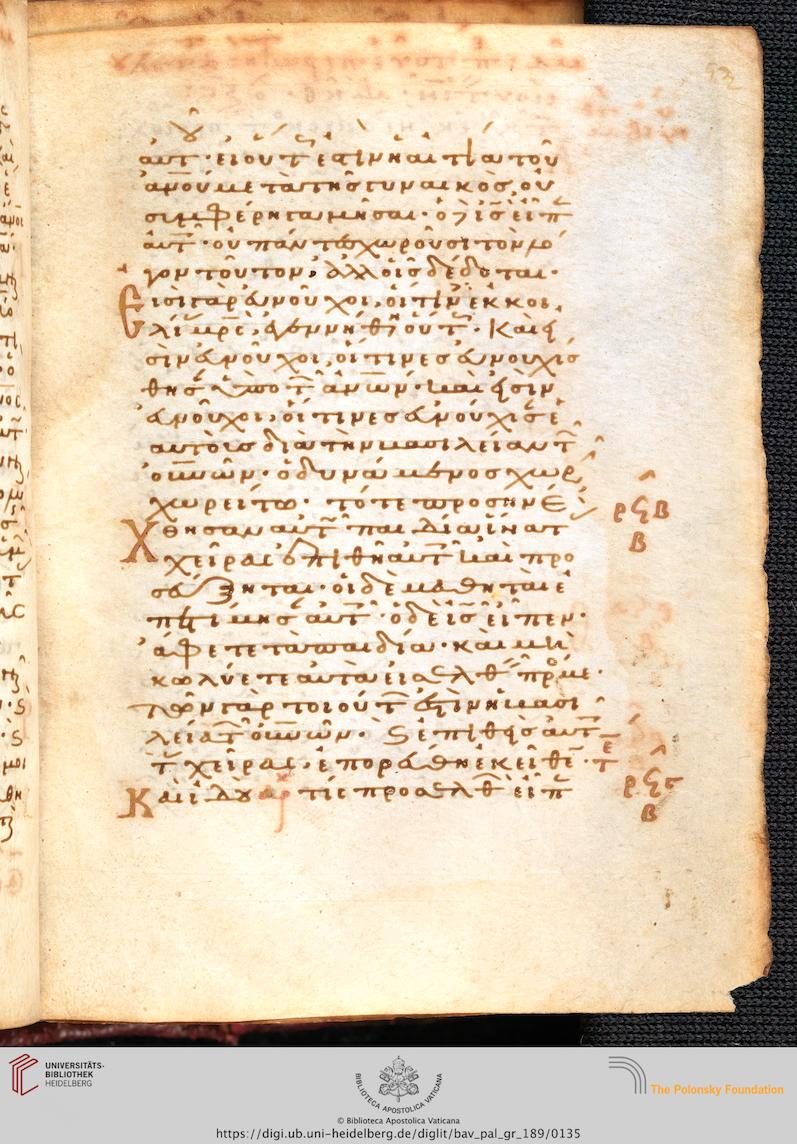 αυτ · ει ουτ εστιν η αιτια του
ανου μετα της γυναικος ου
συμφερει γαμησαι · ο δε ις ειπ
αυτ · ου παντες χωρουσι τον λο
γον τουτον, αλλ οις δεδοται ·
Εισι γαρ ευνουχοι, οιτιν εκ κοι
λι μρς, εγεννηθη ουτ · Και ει
σιν ευνουχοι, οιτινες ευνουχισ
θησ υπο τ ανων · και εισιν
ευνουχοι, οιτινες ευνουχισ ε
αυτοις δια την βασιλειαν τ
ουνων · ο δυναμενος χωρ
χωρειτω · τοτε προσηνε
Χθησαν αυτ παιδια ινα τ
χειρας επιθη αυτ και προ
σευξηται · οι δε μαθηται ε
πετιμησ αυτ · ο δε ις ειπεν ·
αφετε τα παιδια · και μη
κωλυετε αυτα ελθ προς με ·
των γαρ τοιουτ εστιν η βασι
λεια τ ουνων · ϛ επιθεις αυτ
τ χειρας, επορευθη εκειθε ·
Και ιδου τις προσελθ ειπ
ρϟβ
β
ρϟ
β
UNIVERSITÄTS-
BIBLIOTHEK
HEIDELBERG
BIBLIOTECA APOSTOLICA VATICANA
The Polonsky Foundation
© Biblioteca Apostolica Vaticana
https://digi.ub.uni-heidelberg.de/diglit/bav_pal_gr_189/0135